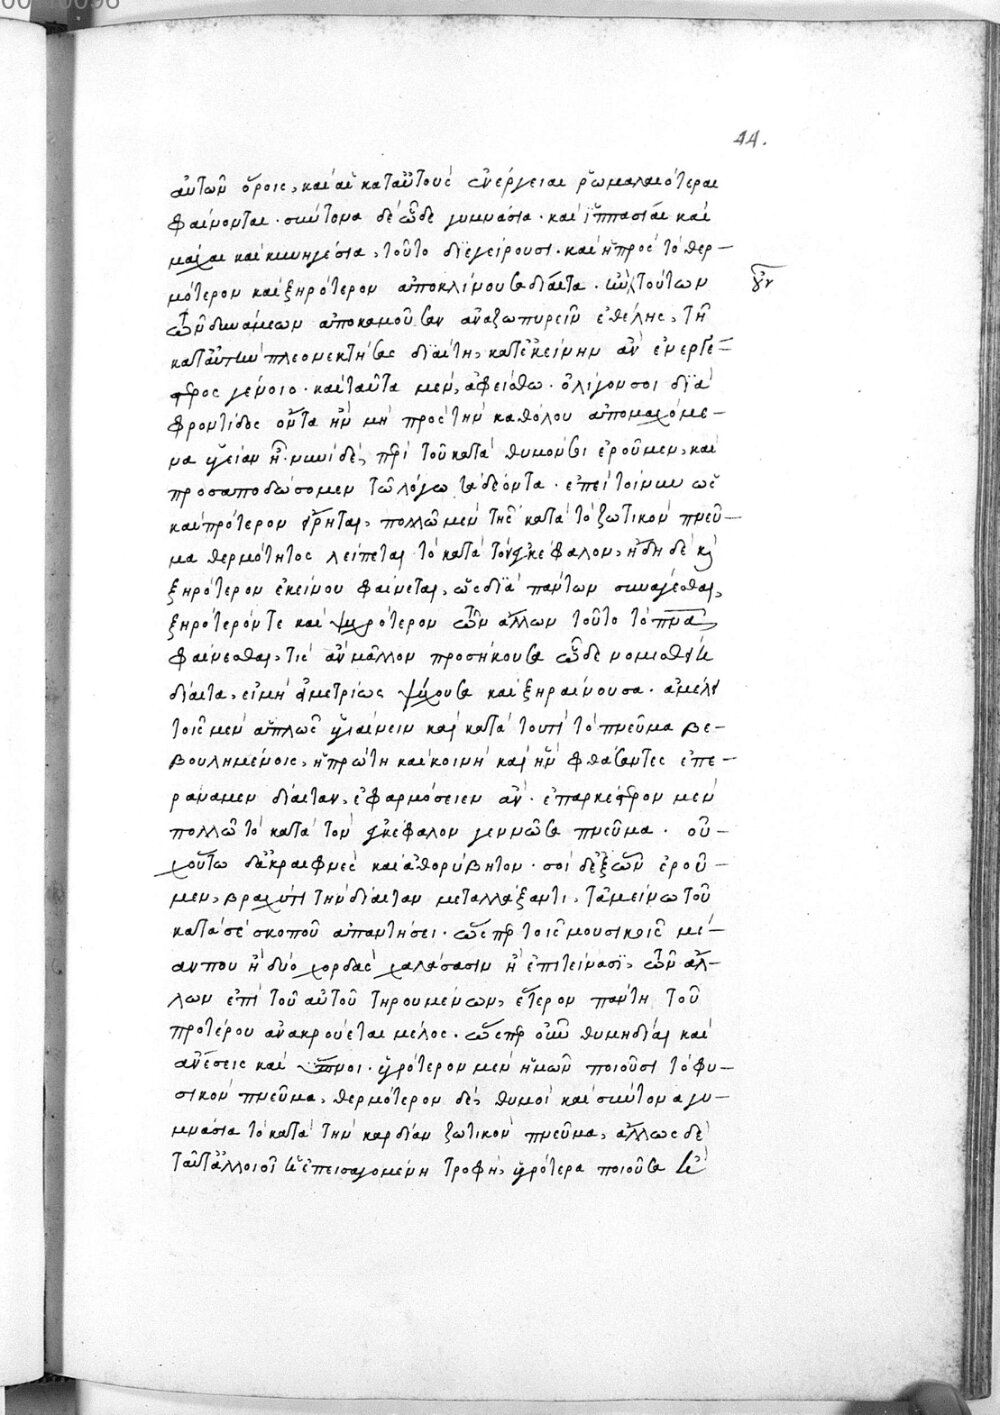 44.
αὐτῶν ὅροις, καὶ αἱ κατ' αὐτοὺς ἐνέργειαι ῥωμαλαιότεραι
φαίνονται. σύντονα δὲ ὧδε γυμνάσια. καὶ ἱππασίαι καὶ
μάχαι καὶ κυνηγέσια, τοῦτο διεγείρουσι. καὶ ἡ πρὸς τὸ θερ–
μότερον καὶ ξηρότερον ἀποκλίνουσα δίαιτα. τούτων
γοῦν
τῶν δυνάμεων ἀποκαμοῦσαν ἀναζωπυρεῖν ἐθέλῃς, τῇ
κατ' αὐτὴν πλεονεκτήσας διαίτῃ, κατ' ἐκείνην ἂν ἐνεργέ–
στερος γένοιο. καὶ ταῦτα μὲν, ἀφείσθω. ὀλίγον σοι διὰ
φροντίδος ὄντα ἢν μὴ πρὸς τὴν καθόλου ἀπομαχόμε–
να ὑγίειαν ᾖ. νυνὶ δὲ, περὶ τοῦ κατὰ θυμόν σοι ἐροῦμεν, καὶ
προσαποδώσομεν τῷ λόγῳ τὰ δέοντα. ἐπεὶ τοίνυν ὡς
καὶ πρότερον εἴρηται, πολλῷ μὲν τῆς κατὰ τὸ ζωτικὸν πνεῦ–
μα θερμότητος λείπεται τὸ κατὰ τὸν ἐγκέφαλον, ἤδη δὲ καὶ
ξηρότερον ἐκείνου φαίνεται, ὡς διὰ πάντων συνάγεσθαι,
ξηρότερόν τε καὶ ψυχρότερον τῶν ἄλλων τοῦτο τὸ πνεῦμα
φαίνεσθαι, τίς ἂν μᾶλλον προσήκουσα τῷδε νομισθείη
δίαιτα, εἰ μὴ συμμετρίως ψύχουσα καὶ ξηραίνουσα. ἀμέλει
τοῖς μὲν ἁπλῶς ὑγιαίνειν καὶ κατὰ τουτὶ τὸ πνεῦμα βε–
βουλημένοις, ἡ πρώτη καὶ κοινὴ καὶ ἣν φθάσαντες ἐπε–
ράναμεν δίαιταν, ἐφαρμόσειεν ἄν. ἐπαρκέστερον μὲν
πολλῷ τὸ κατὰ τὸν ἐγκέφαλον γεννῶσα πνεῦμα. οὐ–
χ οὕτω δ' ἀκραιφνὲς καὶ ἀθορύβητον. σοὶ δὲ ἐξ ὧν ἐροῦ–
μεν, βραχύ τι τὴν δίαιταν μεταλλάξαντι, τἀμείνω τοῦ
κατὰ σὲ σκοποῦ ἀπαντήσει. ὥσπερ τοῖς μουσικοῖς μί–
αν που ἢ δύο χορδὰς χαλάσασιν ἢ ἐπιτείνασι, τῶν ἄλ–
λων ἐπὶ τοῦ αὐτοῦ τηρουμένων, ἕτερον πάντη τοῦ
προτέρου ἀνακρούεται μέλος. ὥσπερ οὖν θυμηδίαι καὶ
ἀνέσεις καὶ ὕπνοι. ὑγρότερον μὲν ἡμῶν ποιοῦσι τὸ φυ–
σικὸν πνεῦμα, θερμότερον δὲ, θυμοὶ καὶ σύντονα γυ–
μνάσια τὸ κατὰ τὴν καρδίαν ζωτικὸν πνεῦμα, ἄλλως δὲ
ταῦτ' ἀλλοιοῖ ἡ ἐπεισαγομένη τροφὴ, ὑγρότερα ποιοῦσα